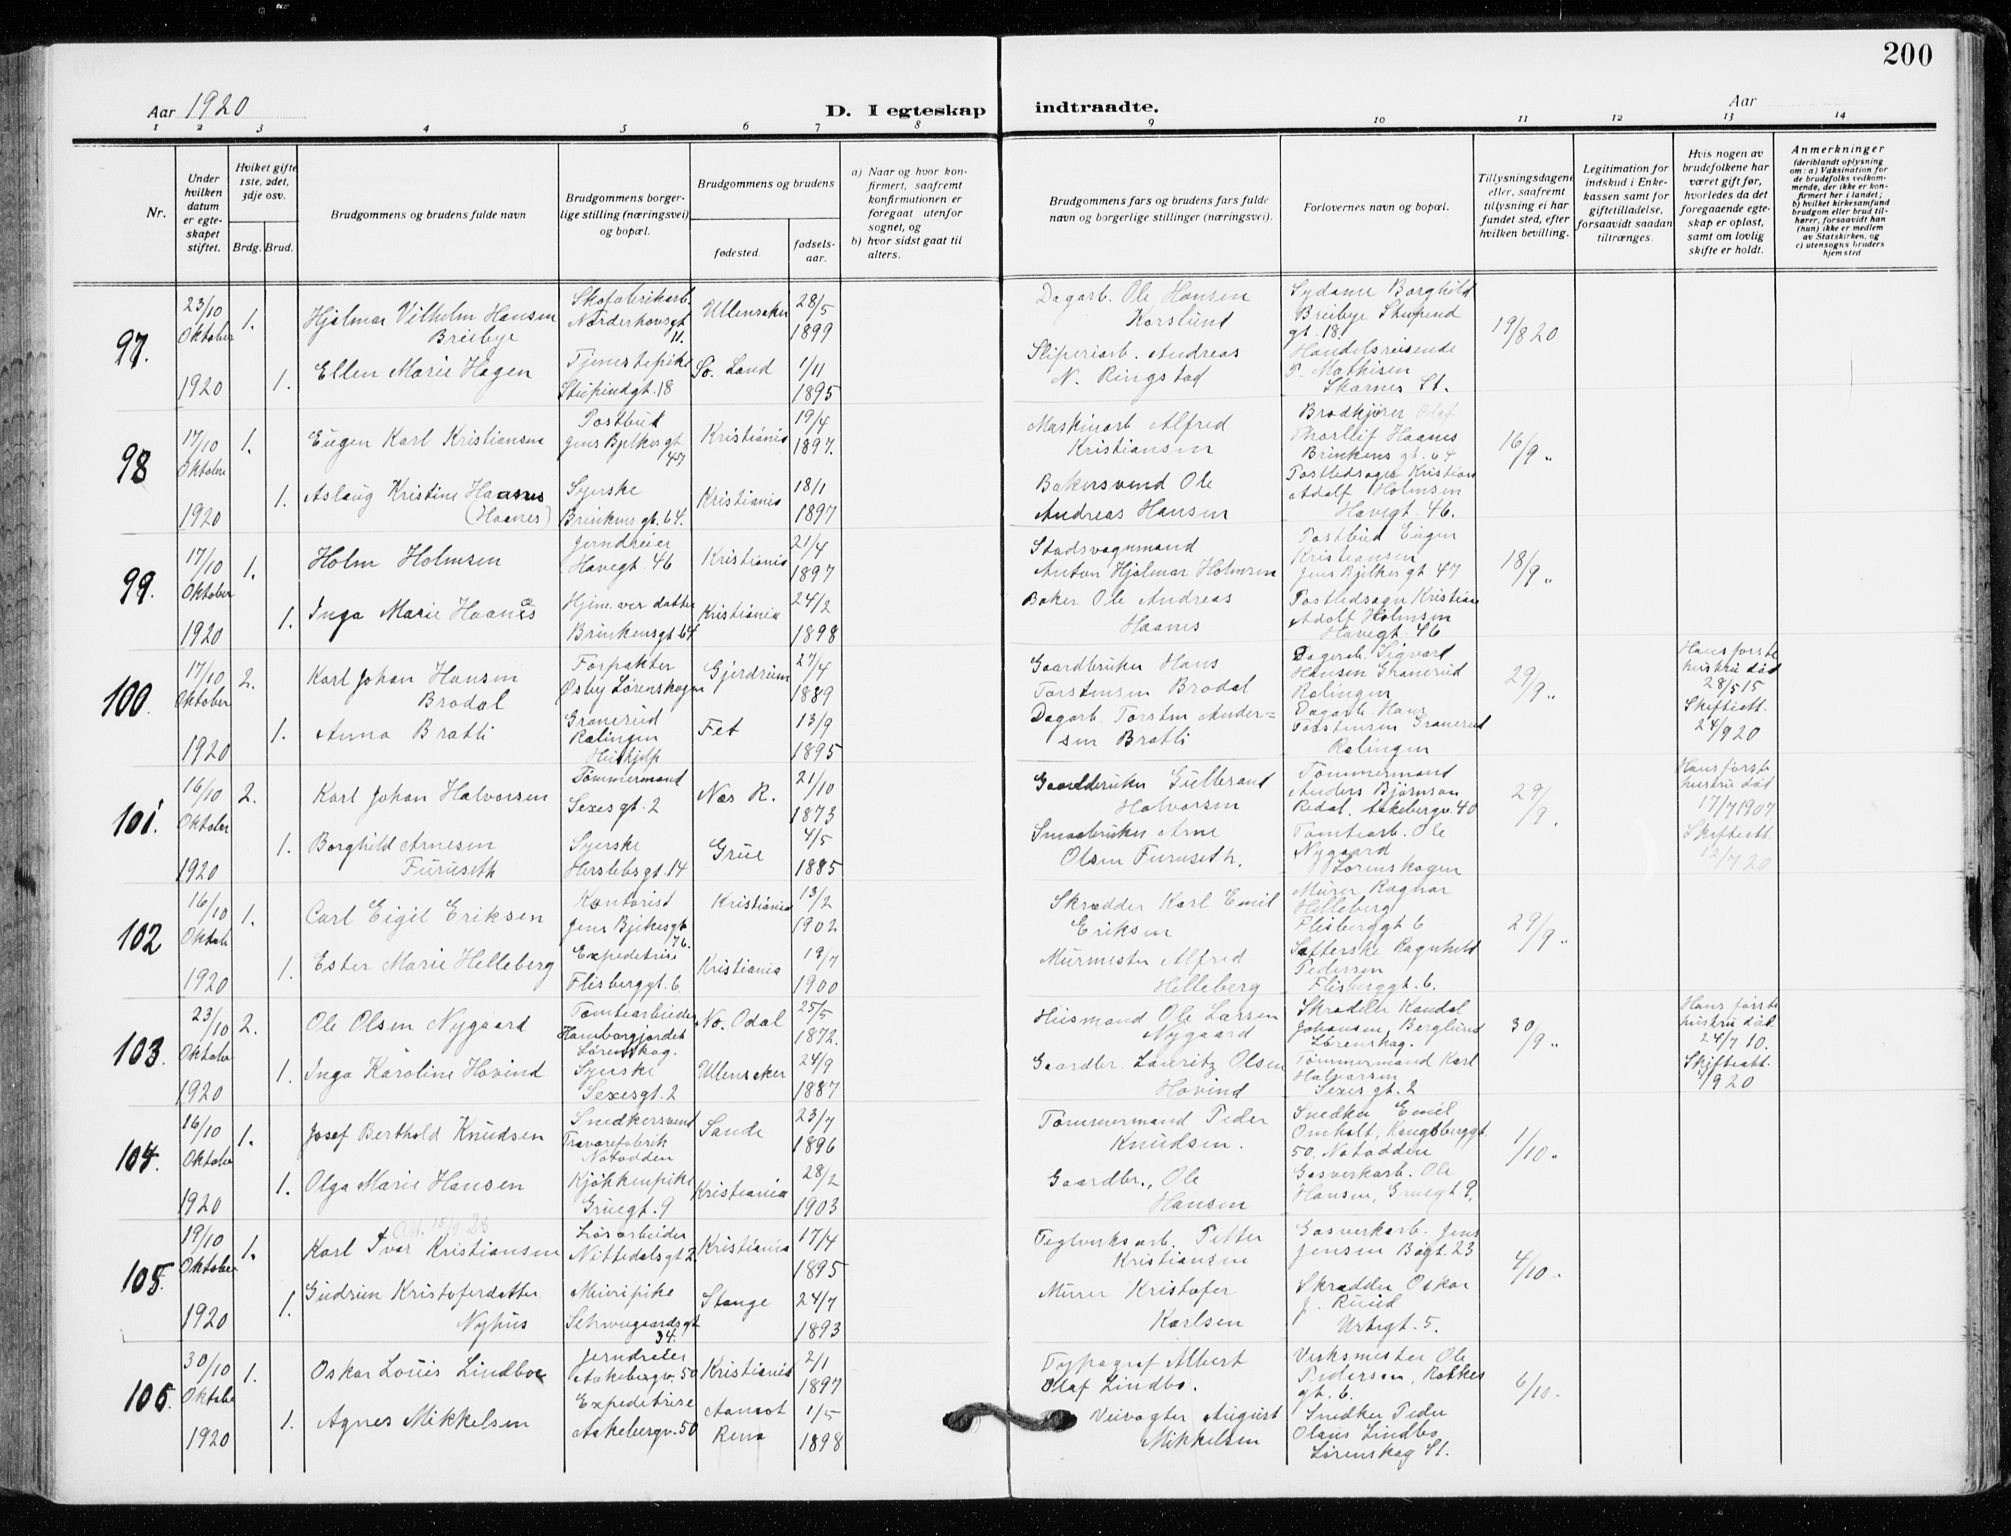 200
Aar 1920
D. I egteskap indtraadte.
Aar
1 2 3 4 5 6 7 8 9 10 11 12 13 14
Nr.
Under hvilken datum er egteskapet stiftet.
Hviket gifte 1ste, 2det, 3dje osv.
Brdg. Brud.
Brudgommens og brudens fulde navn
Brudgommens borgerlige stilling (næringsvei) og bopæl.
Brudgommens og brudens
fødested.
fødselsaar.
a) Naar og hvor konfirmert, saafremt konfirmationen er foregaat utenfor sognet, og
b) hvor sidst gaat til alters.
Brudgommens fars og brudens fars fulde navn og borgerlige stillinger (næringsvei).
Forlovernes navn og bopæl.
Tillysningsdagene eller, saafremt tillysning ei har fundet sted, efter hvilken bevilling.
Legitimation for indskud i Enkekassen samt for giftetilladelse, forsaavidt saadan tiltrænges.
Hvis nogen av brudefolkene har været gift før, hvorledes da det foregaaende egteskap er opløst, samt om lovlig skifte er holdt.
Anmerkninger
(deriblandt oplysning om: a) Vaksination for de brudefolks vedkommende, der ikke er konfirmert her i landet; b) hvilket kirkesamfund brudgom eller brud tilhører, forsaavidt han (hun) ikke er medlem av Statskirken, og c) utensogns bruders hjemsted
97.
23/10 Oktober 1920
1.
Hjalmar Vilhelm Hansen Breibye
Skofabrikarb. Norderhovsgt 11.
Ullensaker
28/5 1899
Dagarb. Ole Hansen Korslund
Sydame Borghild Breibye Stupend gt. 18.
19/8 20
1.
Ellen Marie Hagen
Tjenestepike Stupendgt. 18
Sø. Land
1/11 1895
Sliperiarb. Andreas N. Ringstad
Handelsreisende P. Mathisen Skarnes St.
98
17/10 Oktober 1920
1.
Eugen Karl Kristiansen
Postbud Jens Bjelkes gt 47
Kristiania
19/4 1897.
Maskinarb Alfred Kristiansen
Brødkjører Olaf Thorleif Haanes Brinkens gt. 64
16/9 "
1.
Aslaug Kristine Haanes (Haanes)
Syerske Brinkens gt. 64.
Kristiania
18/1 1897
Bakersvend Ole Andreas Hansen
Postledsager Kristian Adolf Holmsen Havegt. 46.
99.
17/10 Oktober 1920
1.
Holm Holmsen
Jerndreier Havegt. 46
Kristiania
21/4 1897
Stadsvognmand Anton Hjalmar Holmsen
Postbud Eugen Kristiansen Jens Bjelkes gt 47
18/9 "
1.
Inga Marie Haanes
Hjem. ver. datter Brinkensgt. 64
Kristiania
24/2 1898
Baker Ole Andreas Haanes
Postledsager Kristian Adolf Holmsen Havegt. 46
100.
17/10 Oktober 1920
2.
Karl Johan Hansen Brodal
Forpakter Østby Lørenskogen
Gjerdrum
27/4 1889
Gaardbruker Hans Torstensen Brodal
Dagarb. Sigvart Hansen Granerud Rælingen
29/9 "
Hans første hustru død 28/5 15 Skifteatt. 24/9 20
1.
Anna Bratli
Granerud Rælingen Hushjelp
Fet
13/9 1895
Dagarb. Torsten Andersen Bratli
Dagarb. Hans Torstensen Granerud Rælingen
101.
16/10 Oktober 1920
2.
Karl Johan Halvorsen
Tømmermand Sexesgt. 2
Nes R.
21/10 1873
Gaardbruker Gulbrand Halvorsen
Tømmermand Anders Bjørnson Rødal. Aakebergv. 40
29/9.
Hans første hustru død 17/7 1907. Skifteatt. 12/7 20
1.
Borghild Arnesen Furuseth
Syerske Herslebsgt. 14
Grue
4/5 1885
Smaabruker Arne Olsen Furuseth.
Tomtearb. Ole Nygaard Lørenskogen
102
16/10 Oktob. 1920
1.
Carl Eigil Eriksen
Kontorist Jens Bjelkesgt 76.
Kristiania
13/2 1902
Skrædder Karl Emil Eriksen
Murer Ragnar Helleberg Flisberggt 6
29/9 "
1.
Ester Marie Helleberg
Expeditrise Flisberggt. 6.
Kristiania
18/7 1900
Murmester Alfred Helleberg
Safterske Ragnhild Pedersen Flisberggt. 6.
103.
23/10 Oktober 1920
2.
Ole Olsen Nygaard
Tomtearbeider Hamborgjordet Lørenskog.
No. Odal
25/5 1872.
Husmand Ole Larsen Nygaard
Skrædder Kandal Johansen, Berglund Lørenskog.
30/9 "
Hans første hustru død 24/7 10. Skifteatt. 1/9 20
1.
Inga Karoline Hovind
Syerske Sexesgt. 2
Ullensaker
24/9 1887
Gaardbr. Lauritz Olsen Hovind
Tømmermand Karl Halvorsen Sexes gt. 2
104.
16/10 Oktober 1920
1.
Josef Berthold Knudsen
Snedkersvend Trævarefabrik Notodden
Sande
23/7 1896
Tømmermand Peder Knudsen.
Snedker Emil Omholt, Kongsberggt. 50. Notodden
1/10.
1.
Olga Marie Hansen
Kjøkkenpike Gruegt. 9
Kristiania
28/2 1903
Gaardbr., Ole Hansen
Gasverkarb. Ole Hansen, Gruegt 9.
105.
19/10 Oktober 1920
1.
15/9 28
Karl Ivar Kristiansen
Løsarbeider Nittedalsgt 2.
Kristiania
17/4 1895
Teglverksarb. Petter Kristiansen
Gasverkarb. Jens Jensen Bøgt. 23
4/10.
1.
Gudrun Kristoferdatter Nyhus
Meieripike Schweigaardsgt 34.
Stange
24/7 1893
Murer Kristofer Karlsen
Skrædder Oskar J. Ruud Urtegt. 5.
106.
30/10 Oktober 1920
1.
Oskar Louis Lindboe
Jerndreier Aakebergv. 50
Kristiania
2/1 1897
Typograf Albert Olaf Lindbo.
Verksmester Ole Pedersen, Bakkegt. 6.
6/10.
1.
Agnes Mikkelsen
Expeditrise Aakebergv. 50
Aamot Rena
1/5 1898
Veivogter August Mikkelsen
Snedker Peder Olaus Lindbo Lørenskog St.